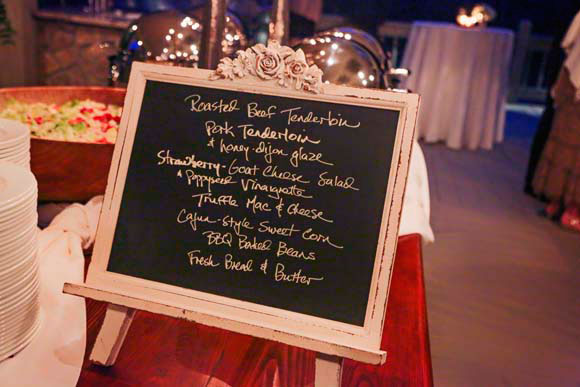 Roasted Beef Tenderloin
Pork Tenderloin
& honey-dijon glaze
Strawberry-Goat Cheese Salad
& Poppyseed Vinaigrette
Truffle Mac & Cheese
Cajun-Style Sweet Corn
BBQ Baked Beans
Fresh Bread & Butter